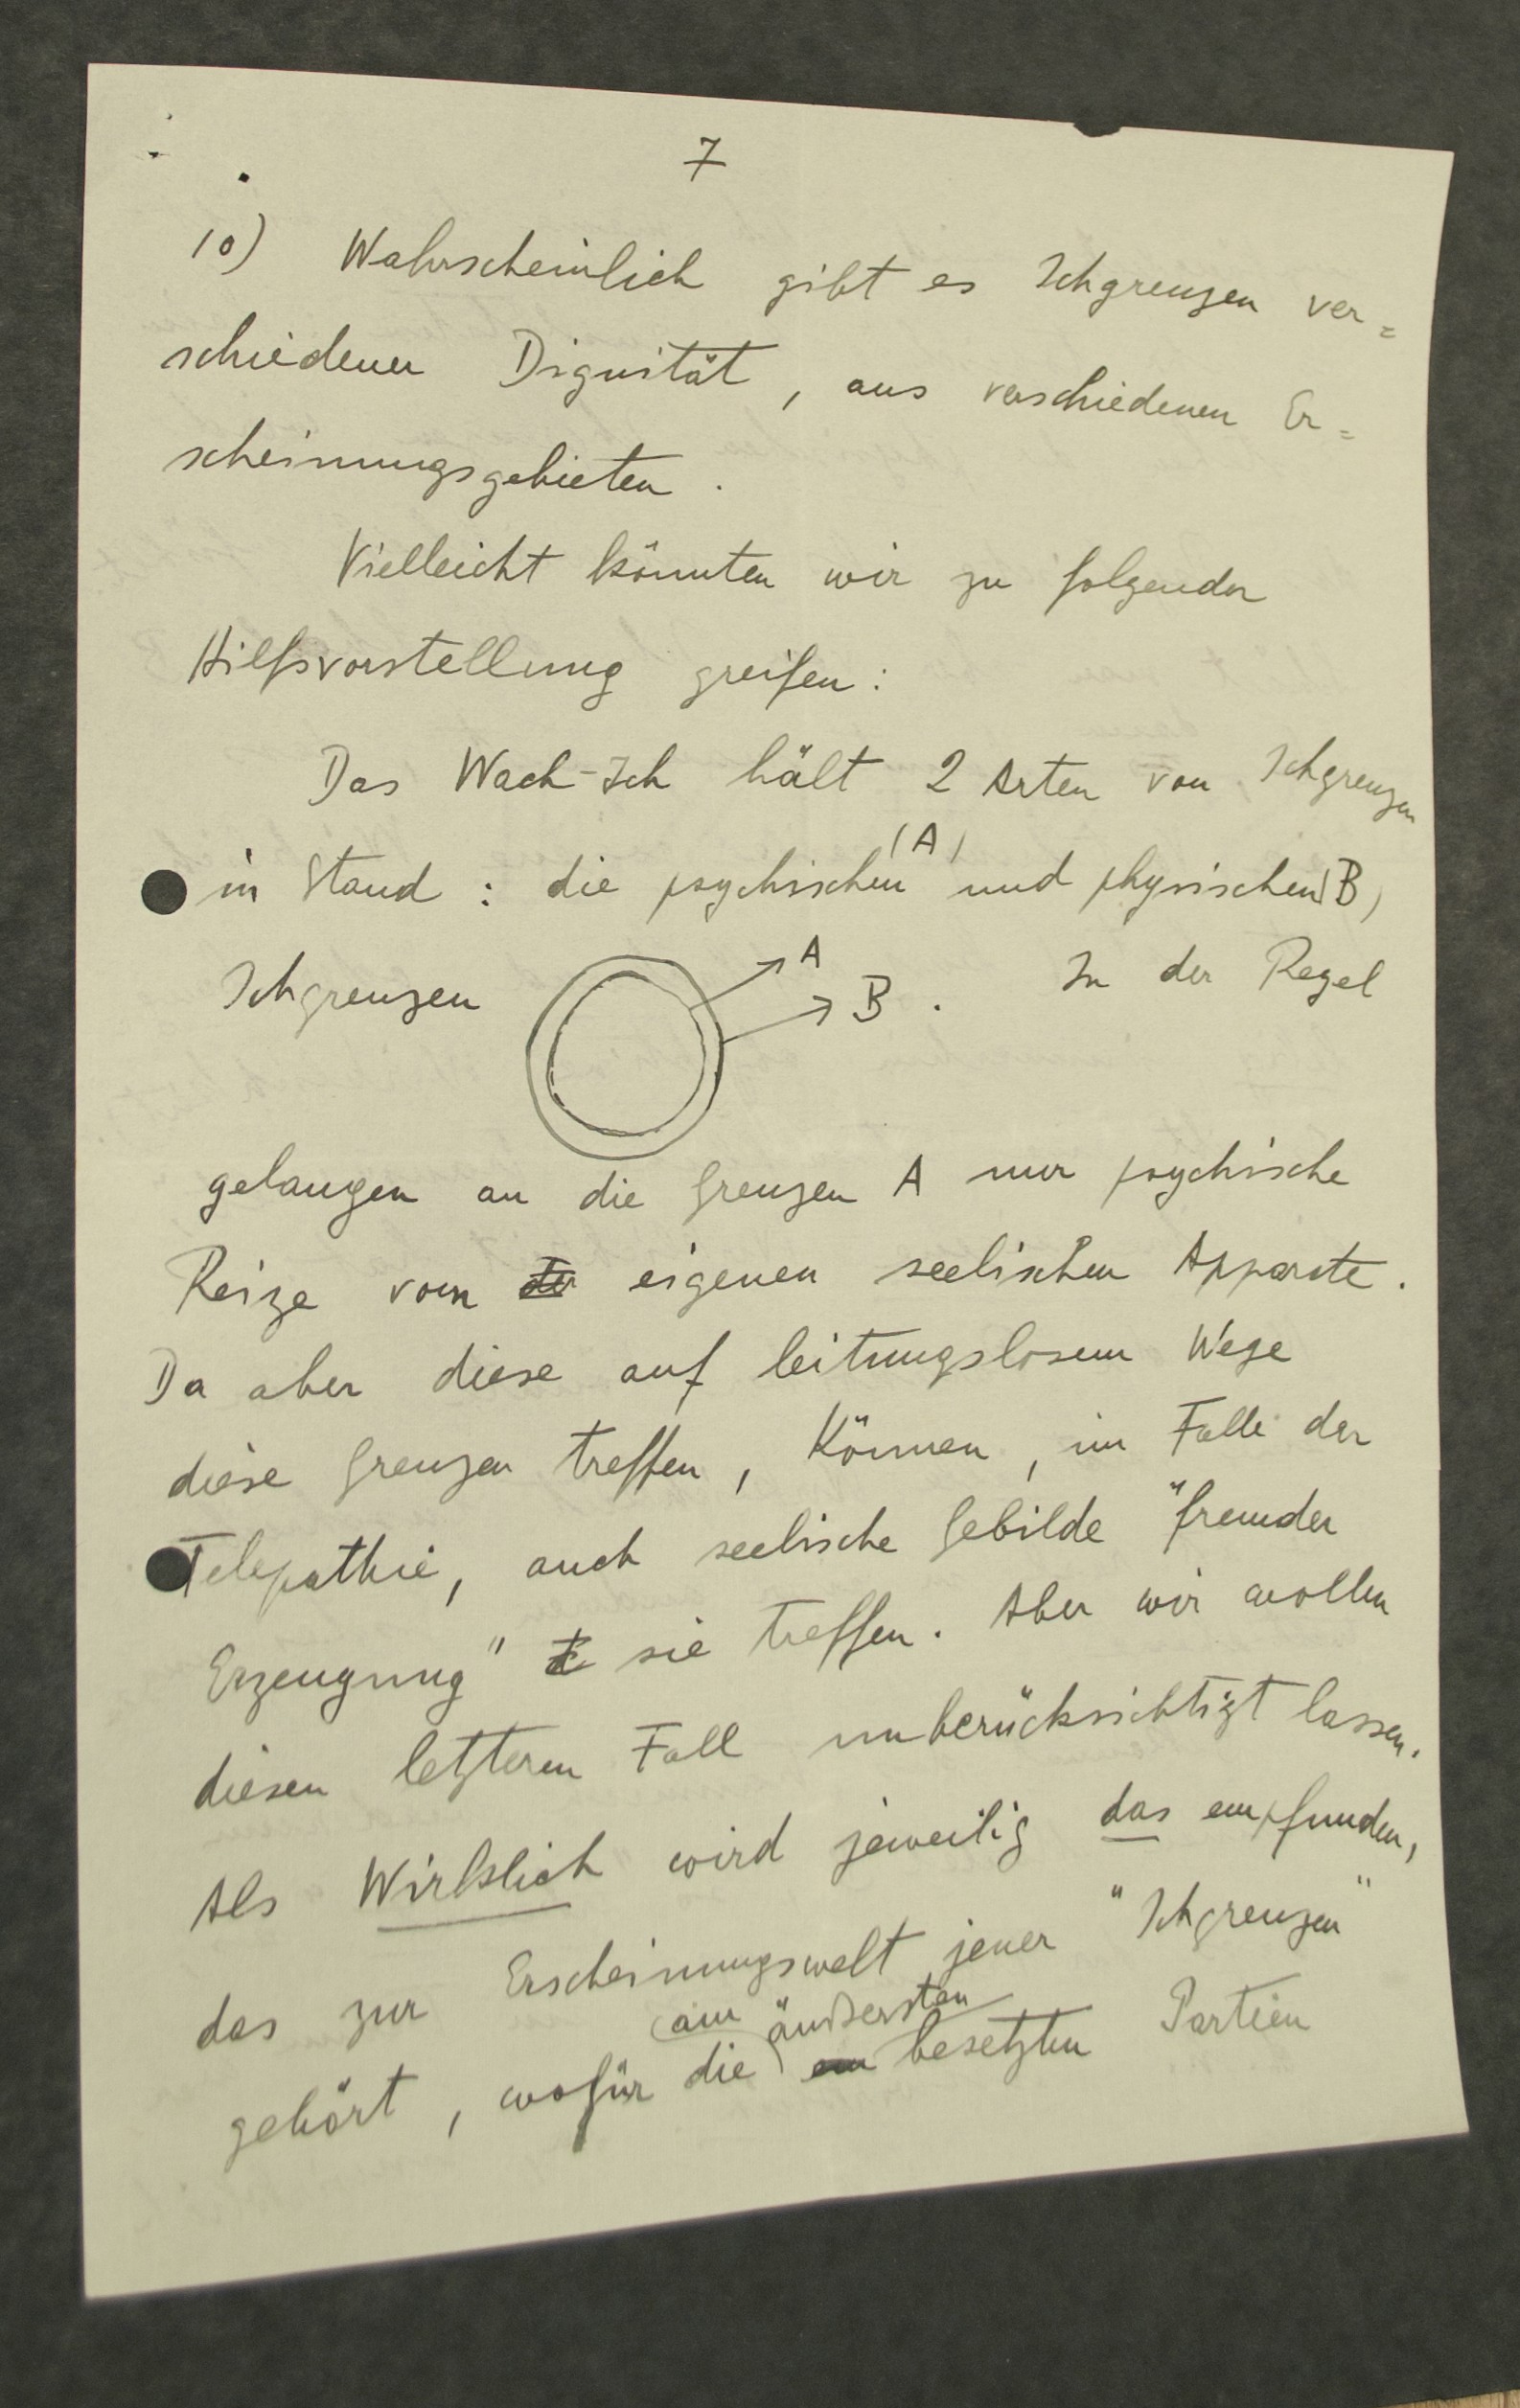 7
10) Wahrscheinlich gibt es Ichgrenzen ver=
schiedener Dignität, aus verschiedenen Er=
scheinungsgebieten.
Vielleicht könnten wir zu folgender
Hilfsvorstellung greifen:
Das Wach-Ich hält 2 Arten von Ichgrenzen
in Stand: die psychischen (A) und physischen (B)
Ichgrenzen A B. In der Regel
gelangen an die Grenzen A nur psychische
Reize vom der eigenen seelischen Apparate.
Da aber diese auf leitungslosem Wege
diese Grenzen treffen, können, im Falle der
Telepathie, auch seelische Gebilde "fremder
Erzeugung" sie treffen. Aber wir wollen
diesen letzteren Fall unberücksichtigt lassen.
Als Wirklich wird jeweilig das empfunden,
das zur Erscheinungswelt jener "Ichgrenzen"
gehört, wofür die am äußersten besetzten Partien